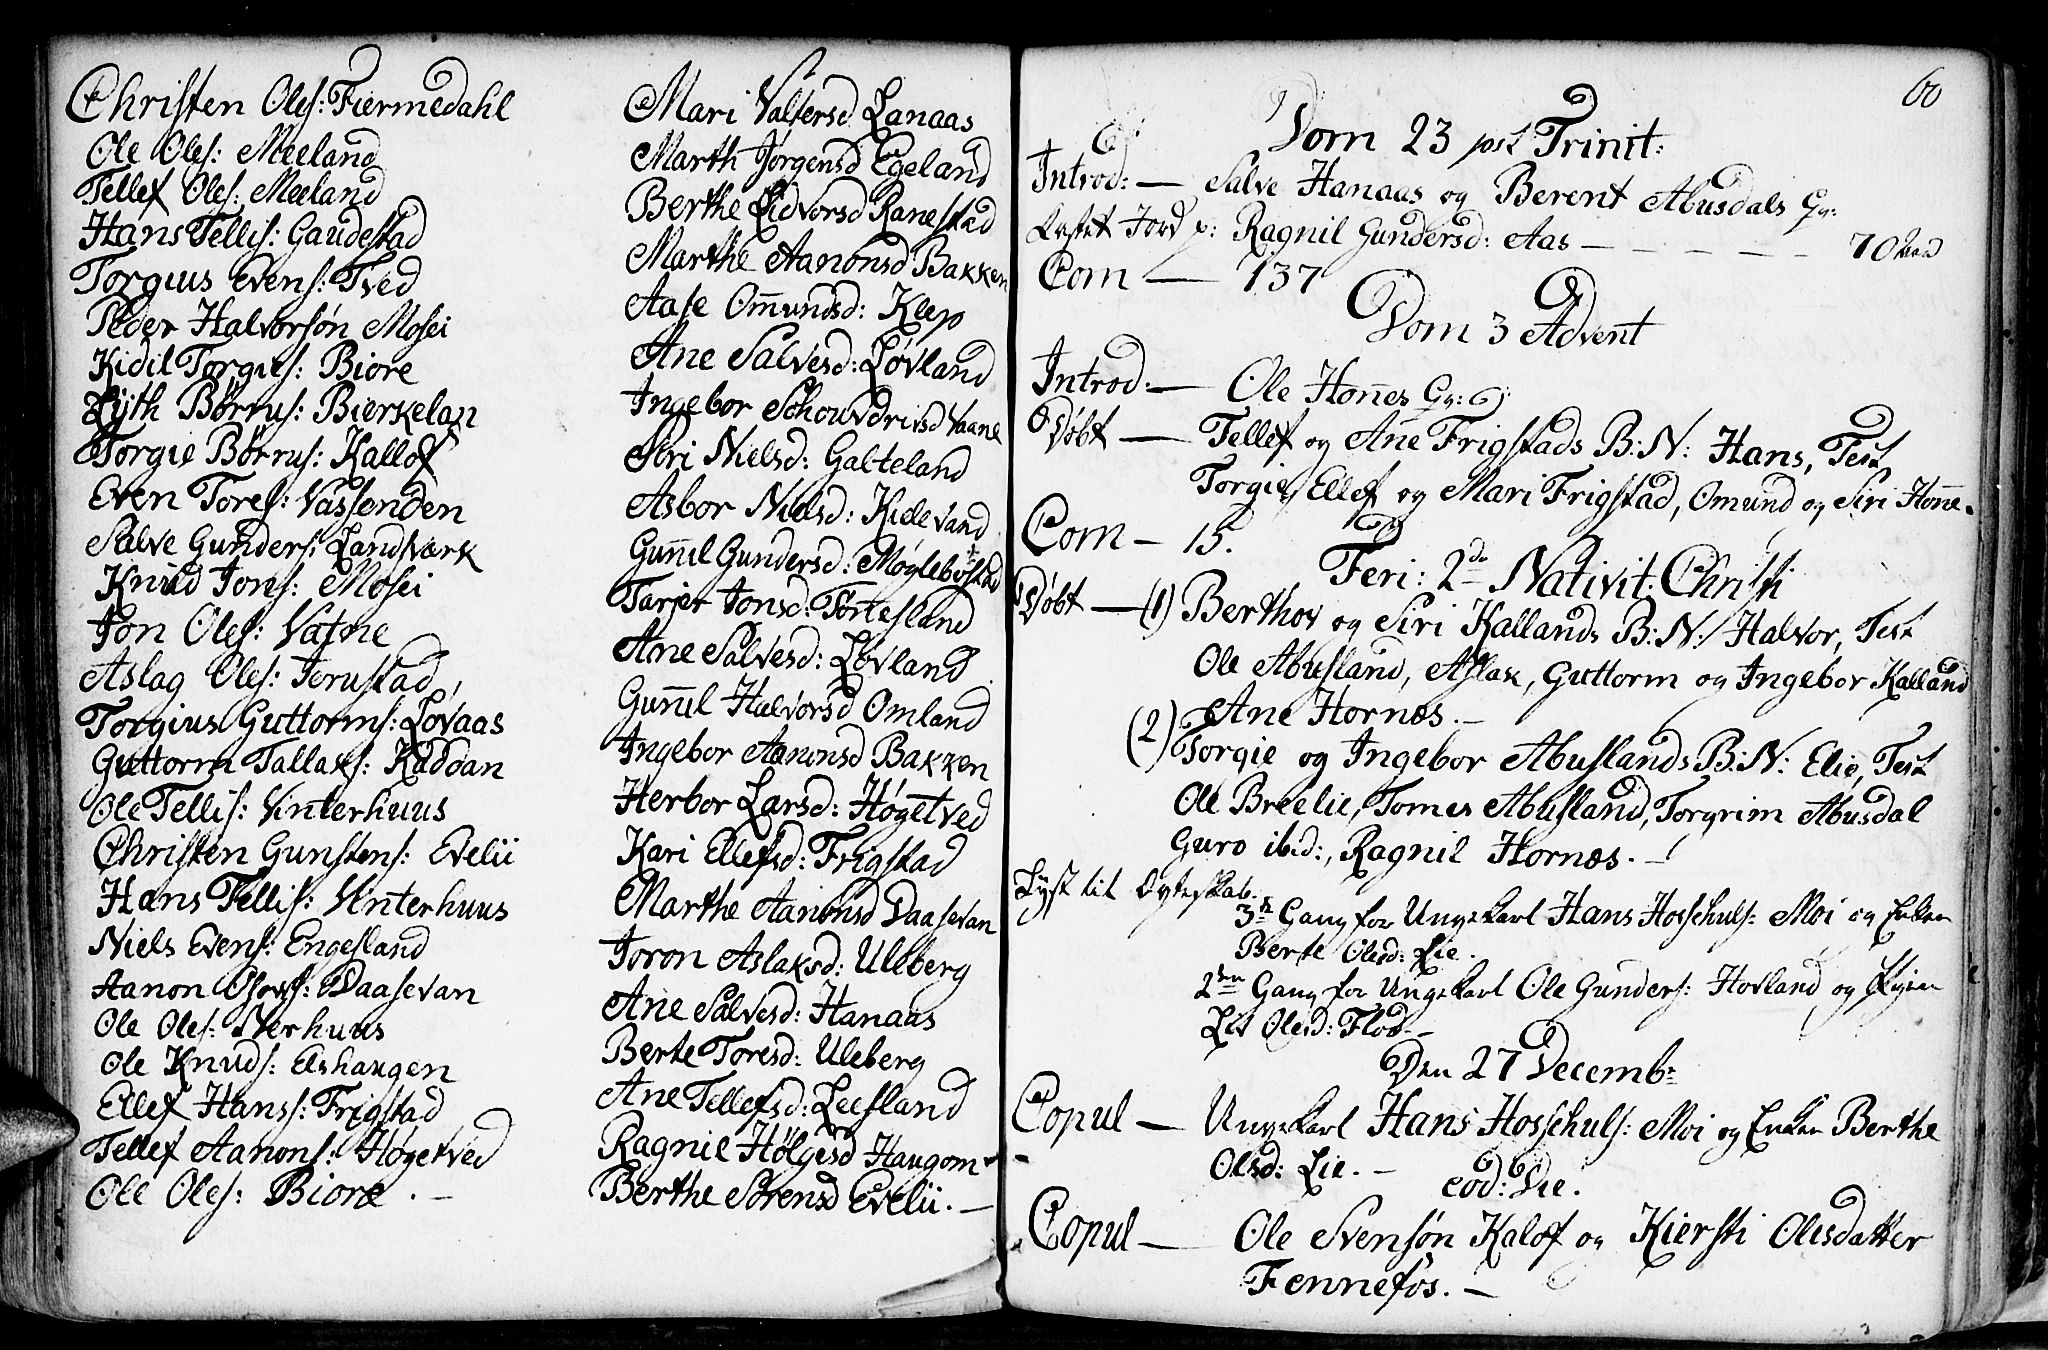 Christen Oles: Fiermedahl
Ole Oles: Meeland
Tellef Oles: Meeland
Hans Tellis: Gaudestad
Torgius Evens: Tved
Peder Halvorsøn Mosei
Kidil Torgies: Biore
Lyth Børrus: Bierkelan
Torgie Børrus: Kallof
Even Tores: Vassenden
Salve Gunders: Landsværk
Knud Jons: Mosei
Jon Oles: Vatne
Aslag Oles: Jerustad
Torgius Guttorms: Lovaas
Guttorm Tallaks: Raddan
Ole Tellis: Vinterhuus
Christen Gunstens: Evelii
Hans Tellis: Vinterhuus
Niels Evens: Engesland
Aanon Daasevan
Ole Oles: Nerhuus
Ole Knuds: Elshaugen
Ellef Hanss: Frigstad
Tellef Aanons: Høgetved
Ole Oles: Biore. —
Mari Valtersd Lanaas
Marth Jørgensd Egeland
Berthe Eidvorsd Ranestad
Marthe Aanonsd Bakken
Aase Omundsd: Klep
Ane Salvesd: Løvland
Ingebor Schouvdrivsd Vaane
Siri Nielsd: Galteland
Asbor Nielsd: Kielevand
Gunnil Gundersd: Møglebøstad
Tarjer Jonsd: Tortesland
Ane Salvesd: Løvland
Gunnil Halvorsd Omland
Ingebor Aanonsd Bakken
Herbor Larsd: Høgetved
Kari Ellefsd: Frigstad
Marthe Aanonsd Daasevan
Joron Aslaksd: Uleberg
Ane Salvesd: Hanaas
Berte Toresd: Uleberg
Ane Tellefsd: Leesland
Ragnil Holgesd Haugom
Berthe Sørensd Evelii. —
60
Dom 23 post Trinit:
Introd: — Salve Hanaas og Berent Abusdals Gr:
Kastet Jord p: Ragnil Gundersd: Aas — — — — — 70
Com — 137
Dom 3 Advent
Introd: — Ole Hones Gr:
Døbt — Tellef og Ane Frigstads B: N: Hans, Test
Torgie, Ellef og Mari Frigstad, Omund og Siri Honne.
Com — 15.
Feri: 2da Nativit: Christi
Døbt — (1) Berthov og Siri Kallands B: N: Halvor, Test
Ole Abusland, Aslak, Guttorm og Ingebor Kalland
Ane Hornæs. —
(2) Torgie og Ingebor Abuslands B: N: Elie, Test
Ole Breelie, Tomes Abusland, Torgrim Abusdal
Guro ibid:, Ragnil Hornæs. —
Lyst til Egteskab.
3die Gang for Ungekarl Hans Hosschuls: Moi og Enken
Berte Olesd: Lie.
2den Gang for Ungekarl Ole Gunders: Hovland og Pigen
Lis Olesd: Flod —
Den 27 Decembr
Copul — Ungekarl Hans Hosschuls: Moi og Enken Berthe
Olsd: Lie. —
eod: Die.
Copul — Ole Svensøn Kalof og Kiersti Olesdatter
Fennefos. —